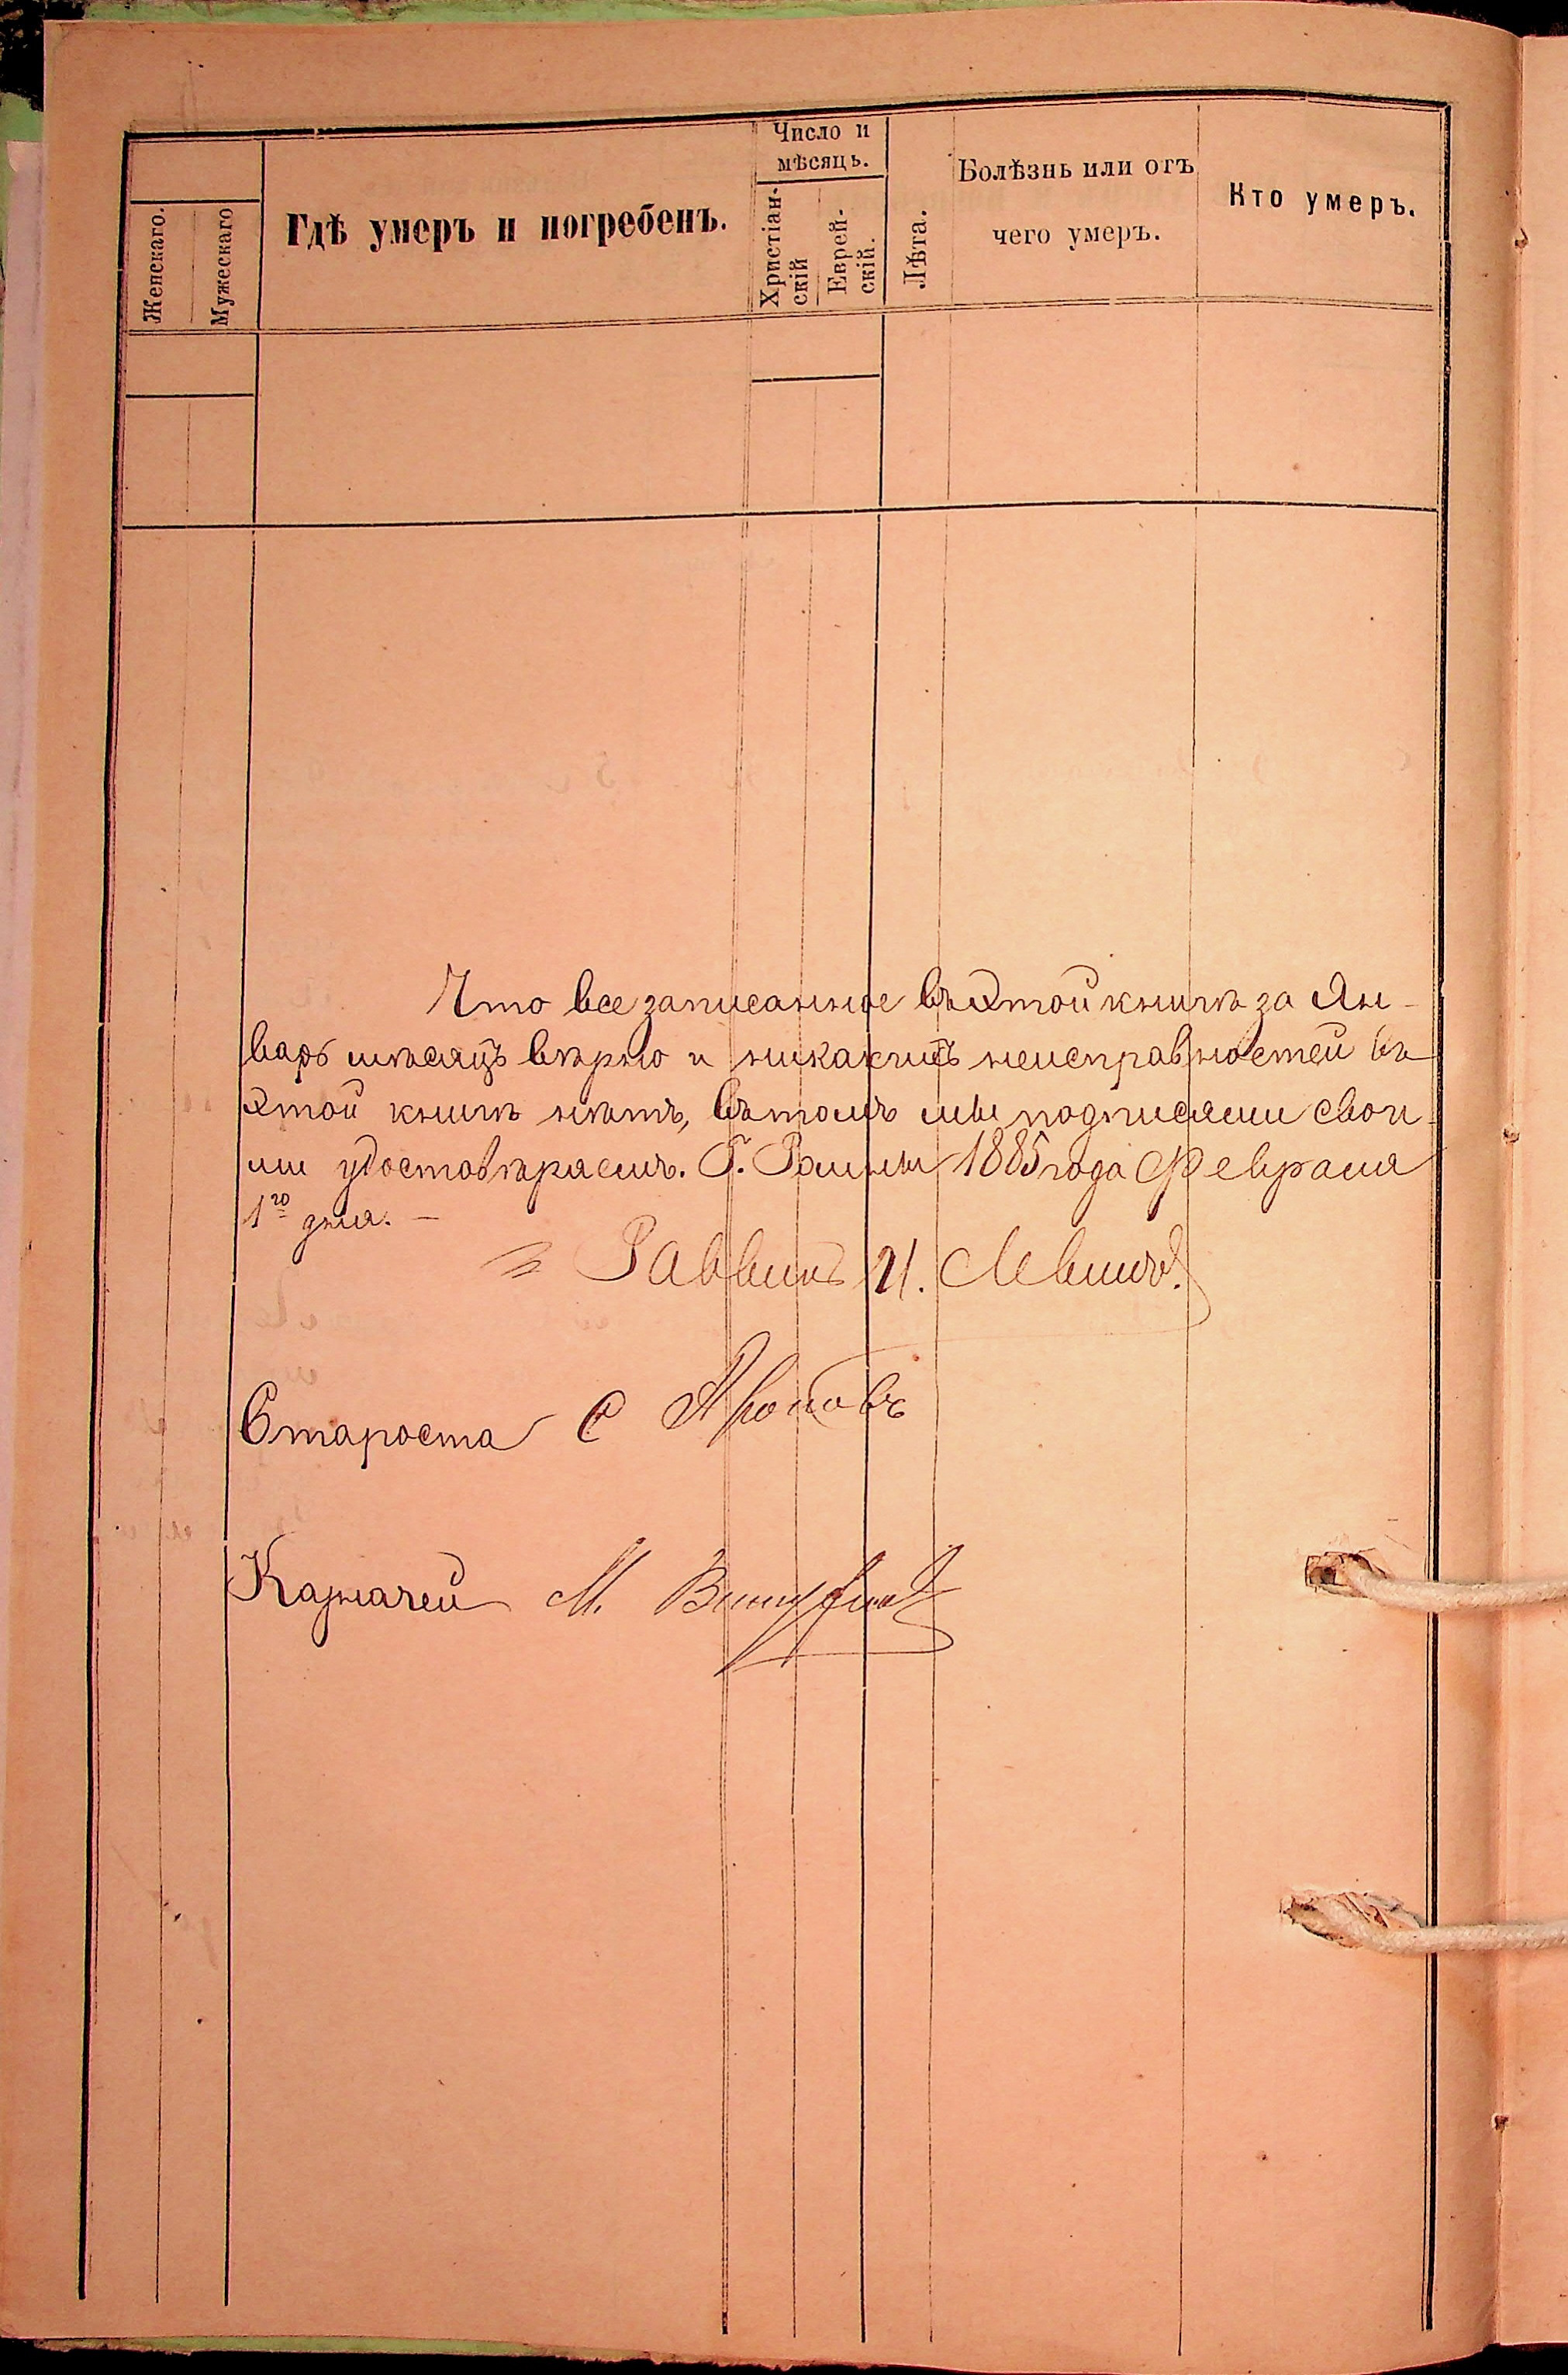 Женскаго.
Мужескаго
Гдѣ умеръ и погребенъ.
Число и
мѣсяць.
Христіан-
скій
Еврей-
скій.
Лѣта.
Болѣзнь или отъ
чего умеръ.
Кто умеръ.
Что все записанное въ этой книгѣ за Ян-
варь мѣсяцъ вѣрно и никакихъ неисправностей въ
этой книгѣ нѣтъ, въ томъ мы подписями свои-
ми удостовѣряемъ. Г. Ромны 1885 года Февраля
1го дня. —
Раввинъ И. Левинъ.
Староста С Ароновъ
Казначей М.